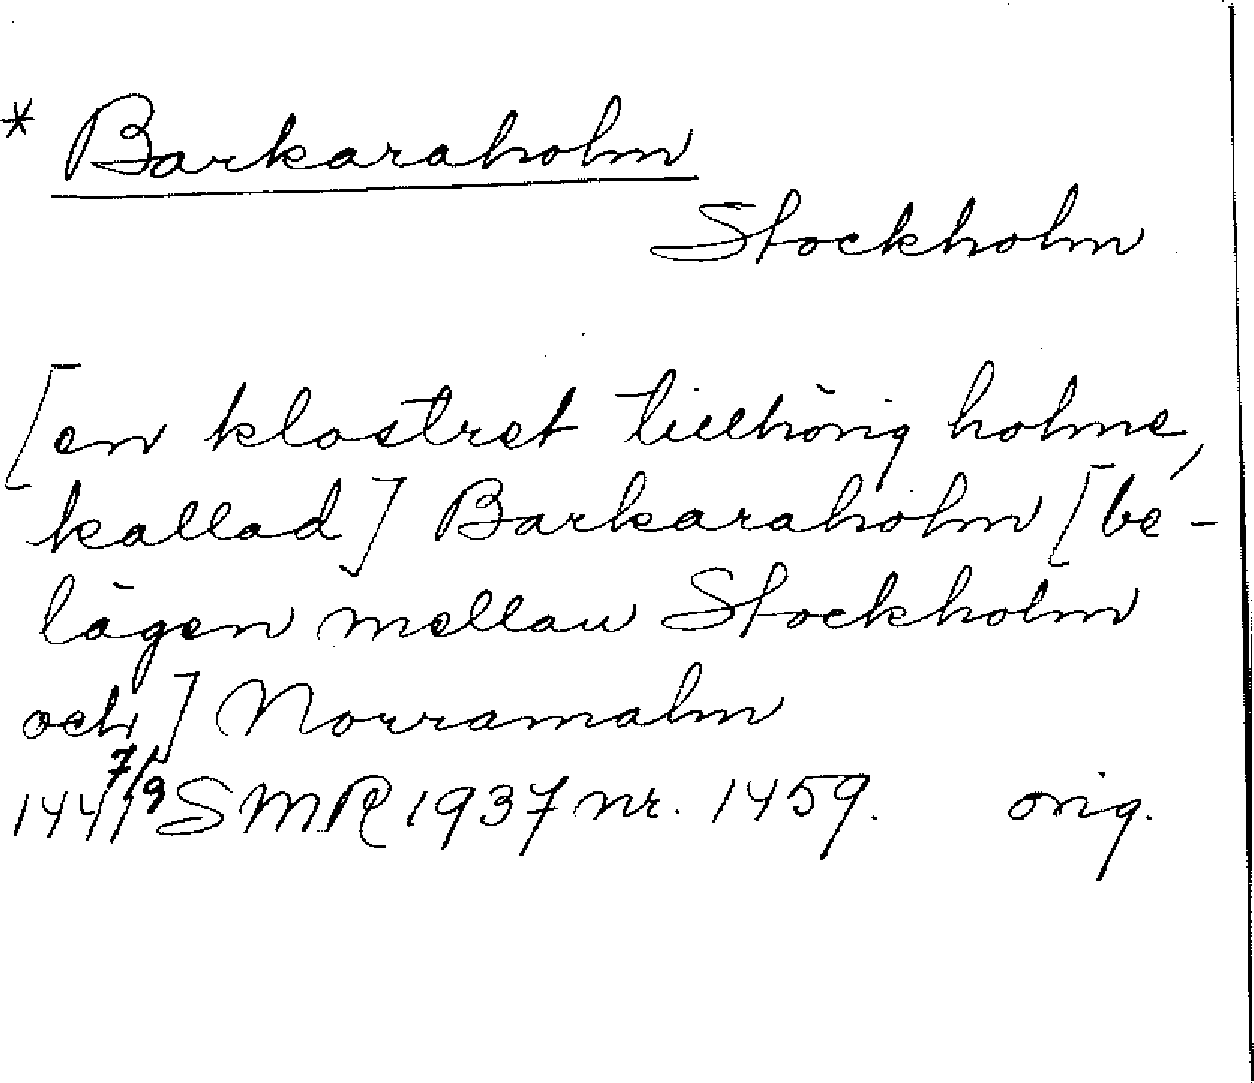 * Barkaraholm
Stockholm
[en klostret tillhörig holme,
kallad] Barkaraholm [be-
lägen mellan Stockholm
och] Norramalm
1447 7/9 SMR 1937 nr. 1459. orig.